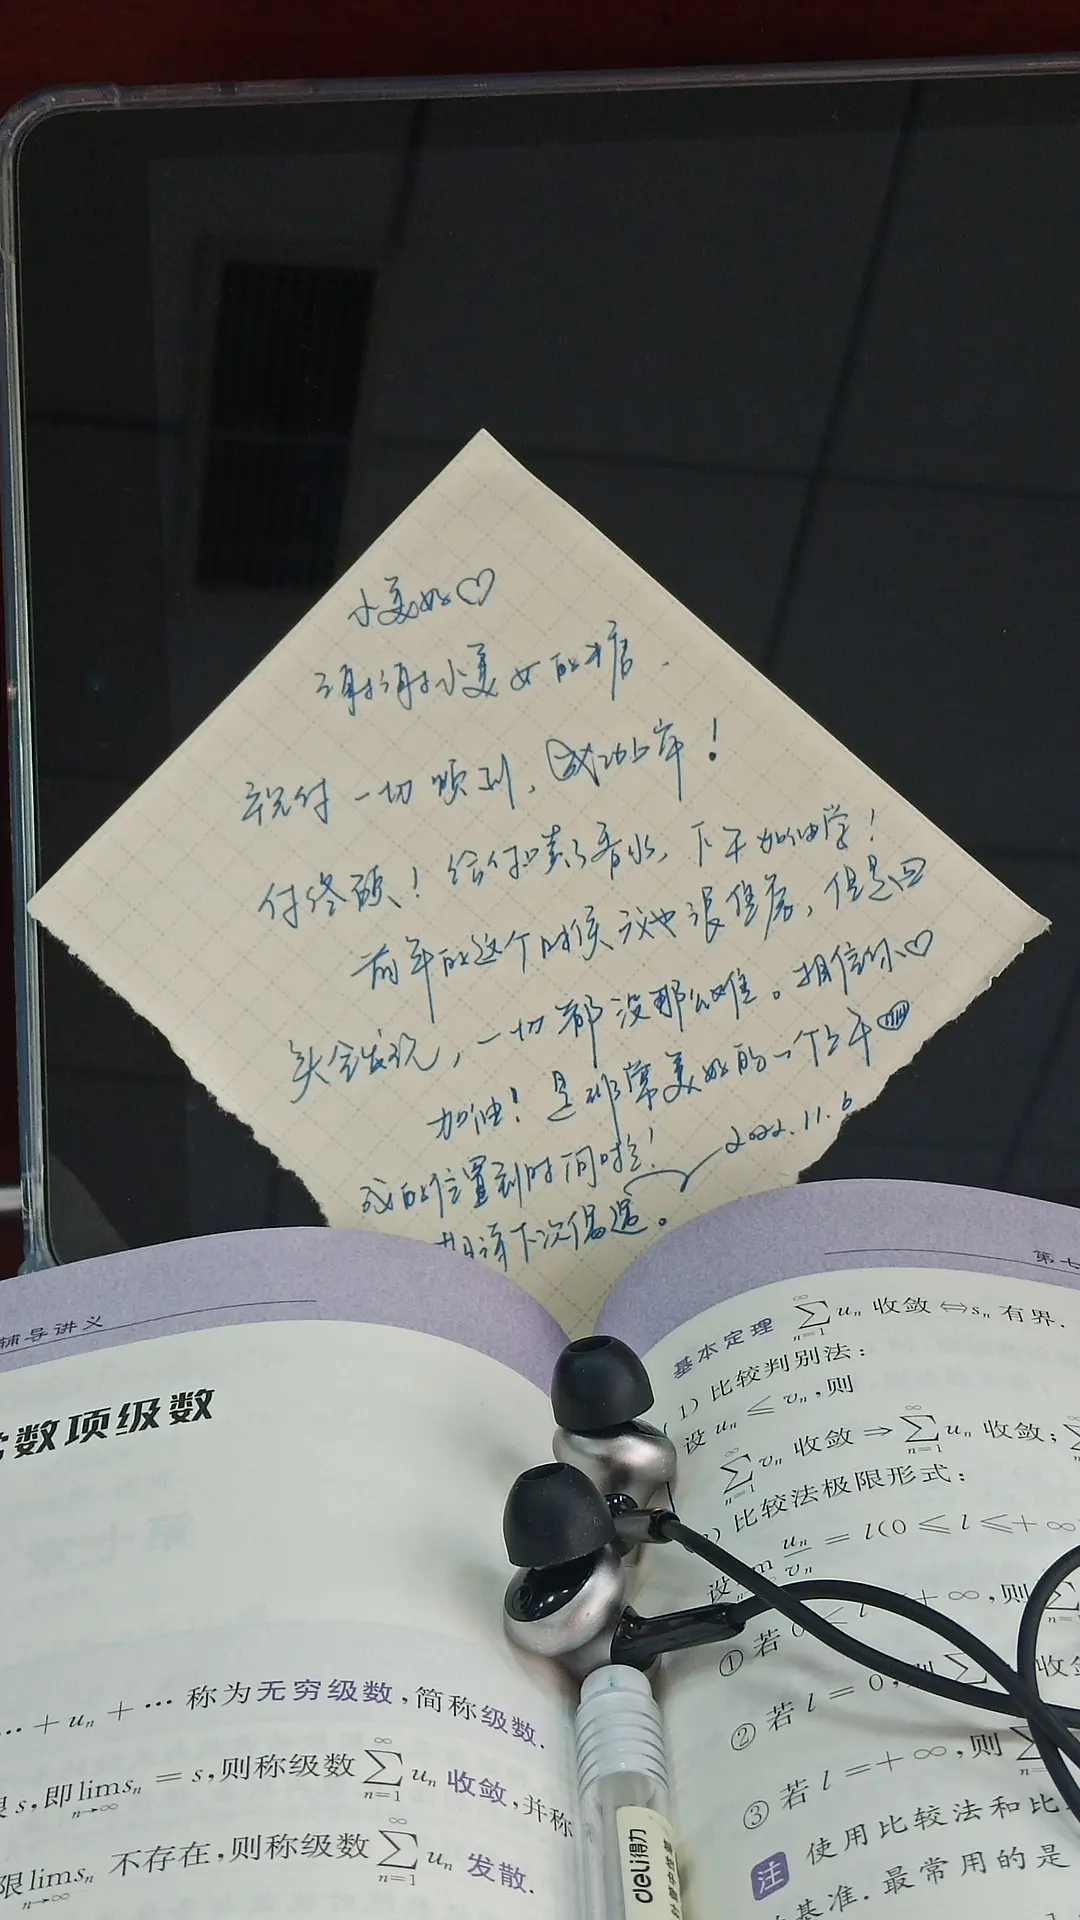 小美女♡
谢谢小美女的糖.
祝你一切顺利, 成功上岸!
付终硕! 给你喷了香水, 下午加油学!
前年的这个时候我也很焦虑, 但是回
头会发现, 一切都没那么难。相信你♡
加油! 是非常美好的一个上午
我的位置到时间啦!
期待下次偶遇。
2022.11.6
辅导讲义
数项级数
…+uₙ+… 称为无穷级数,简称级数.
s,即lim sₙ = s,则称级数 ∑uₙ 收敛,并称
n→∞ n=1 ∞
限lim sₙ 不存在,则称级数 ∑uₙ 发散.
n→∞ n=1 ∞
第七
基本定理 ∑uₙ 收敛⇔sₙ 有界.
n=1 ∞
(1) 比较判别法:
设 uₙ ≤ vₙ,则
∑vₙ 收敛 ⇒ ∑uₙ 收敛;
n=1 ∞ n=1 ∞
比较法极限形式:
设 uₙ/vₙ = l(0 ≤ l ≤ +∞
① 若 0 ≤ l < +∞,则
② 若 l = 0,则 ∑ 收敛
③ 若 l = +∞,则 ∑
注 使用比较法和比
基准.最常用的是
deli得力